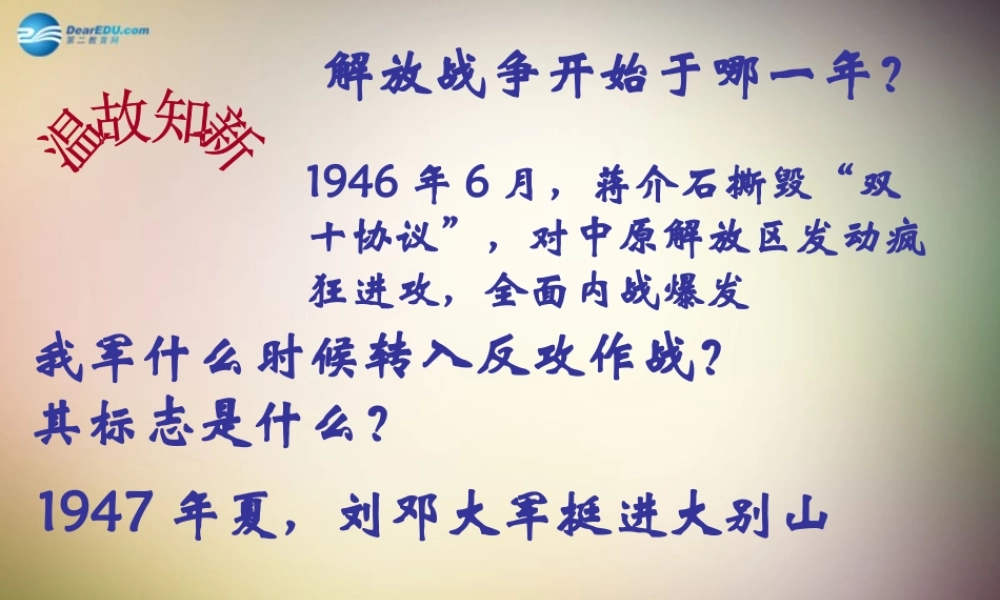 DearEDU.com
第二教育网
温故知新
解放战争开始于哪一年？
1946 年 6 月，蒋介石撕毁“双
十协议”，对中原解放区发动疯
狂进攻，全面内战爆发
我军什么时候转入反攻作战？
其标志是什么？
1947 年夏，刘邓大军挺进大别山